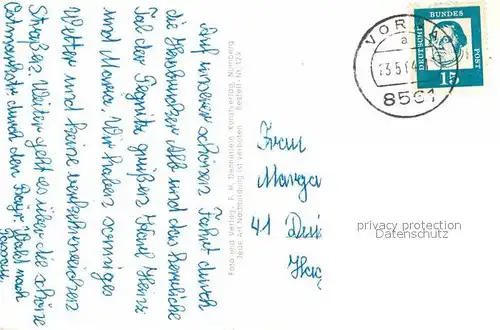 Auf unserer schönen Fahrt durch
die Hersbrucker Alb und das herrliche
Tal der Pegnitz grüßen Karl Heinz
und Maria. Wir haben sonniges
Wetter und keine verkehrsreichen
Straßen. Weiter geht es über die schöne
Ostmarkstr. durch den Bayr. Wald nach
Passau.
Foto und Verlag: Kunstverlag, Nürnberg
Jede Art Nachbildung ist verboten Bestell Nr. 12
VOR
a
8561
DEUTSCHE
BUNDES
POST
15
Frau
Marga
41 Dui
privacy protection
Datenschutz